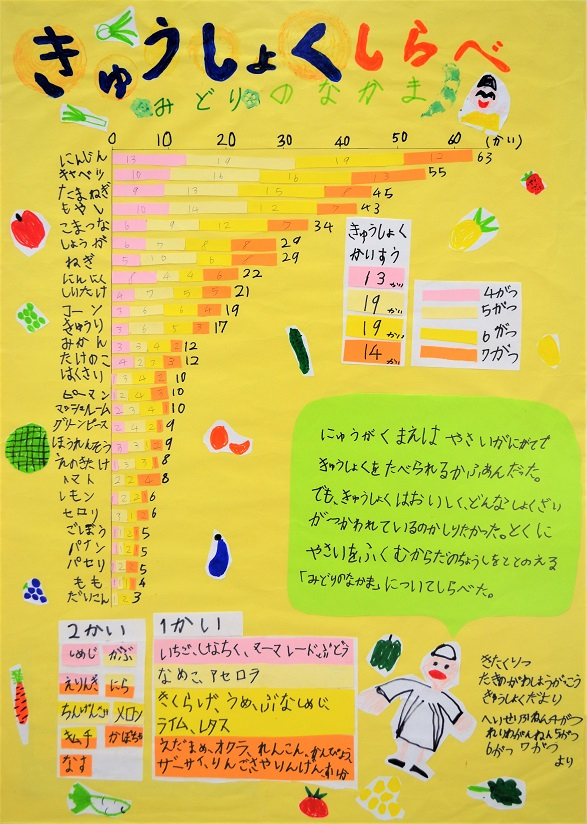 きゅうしょくしらべ
みどりのなかま
0 10 20 30 40 50 60 (かい)
にんじん 13 19 19 12 63
キャベツ 10 16 16 13 55
たまねぎ 9 13 15 8 45
もやし 10 14 12 7 43
こまつな 6 9 12 7 34
しょうが 6 7 8 8 29
ねぎ 5 10 6 8 29
にんにく 8 4 4 6 22
しいたけ 4 7 5 5 21
コーン 3 6 6 4 19
きゅうり 3 6 5 3 17
みかん 3 3 4 2 12
たけのこ 4 2 3 12
はくさい 3 4 2 10
ピーマン 10
マッシュルーム 2 3 4 10
グリーンピース 2 4 2 9
ほうれんそう 9
えのきたけ 8
トマト 2 2 4 8
レモン 2 2 6
セロリ 1 2 6
ごぼう 5
パイン 5
パセリ 5
もも 4
だいこん 3
きゅうしょく
かいすう
13かい
19かい
19かい
14かい
4がつ
5がつ
6がつ
7がつ
にゅうがくまえは やさいがにがてで
きゅうしょくをたべられるかふあんだった。
でも、きゅうしょくはおいしく、どんなしょくざい
がつかわれているのかしりたかった。とくに
やさいをふくむからだのちょうしをととのえる
「みどりのなかま」についてしらべた。
2かい
しめじ かぶ
えりんぎ にら
ちんげんさい メロン
キムチ かぼちゃ
なす
1かい
いちご、しなちく、マーマレード、ぶどう
なめこ、アセロラ
きくらげ、うめ、ぶなしめじ
ライム、レタス
えだまめ、オクラ、れんこん、かんぴょう
ザーサイ、りんご、さやいんげん、すいか
きたくりつ
たきのがわしょうがっこう
きゅうしょくだより
へいせい31ねん4がつ
れいわがんねん5がつ
6がつ 7がつ
より